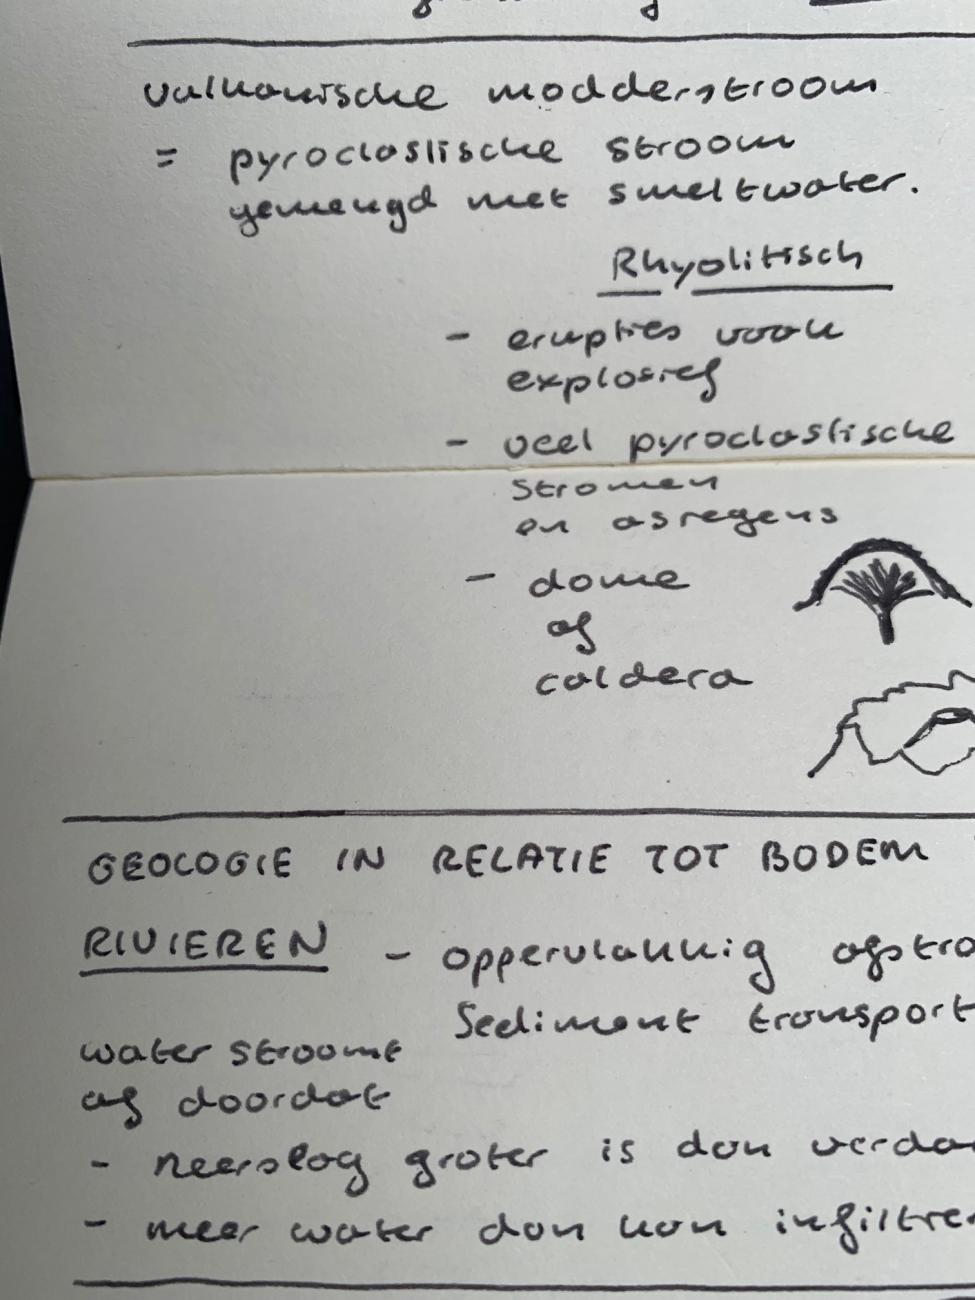 vulkanische modderstroom
= pyroclastische stroom
gemengd met smeltwater.
Rhyolitisch
- erupties vaak
explosief
- veel pyroclastische
stromen
en asregens
- dome
of
caldera
GEOLOGIE IN RELATIE TOT BODEM
RIVIEREN - oppervlakkig afstro
Sediment transport
water stroomt
af doordat
- neerslag groter is dan verda
- meer water dan kan infiltre